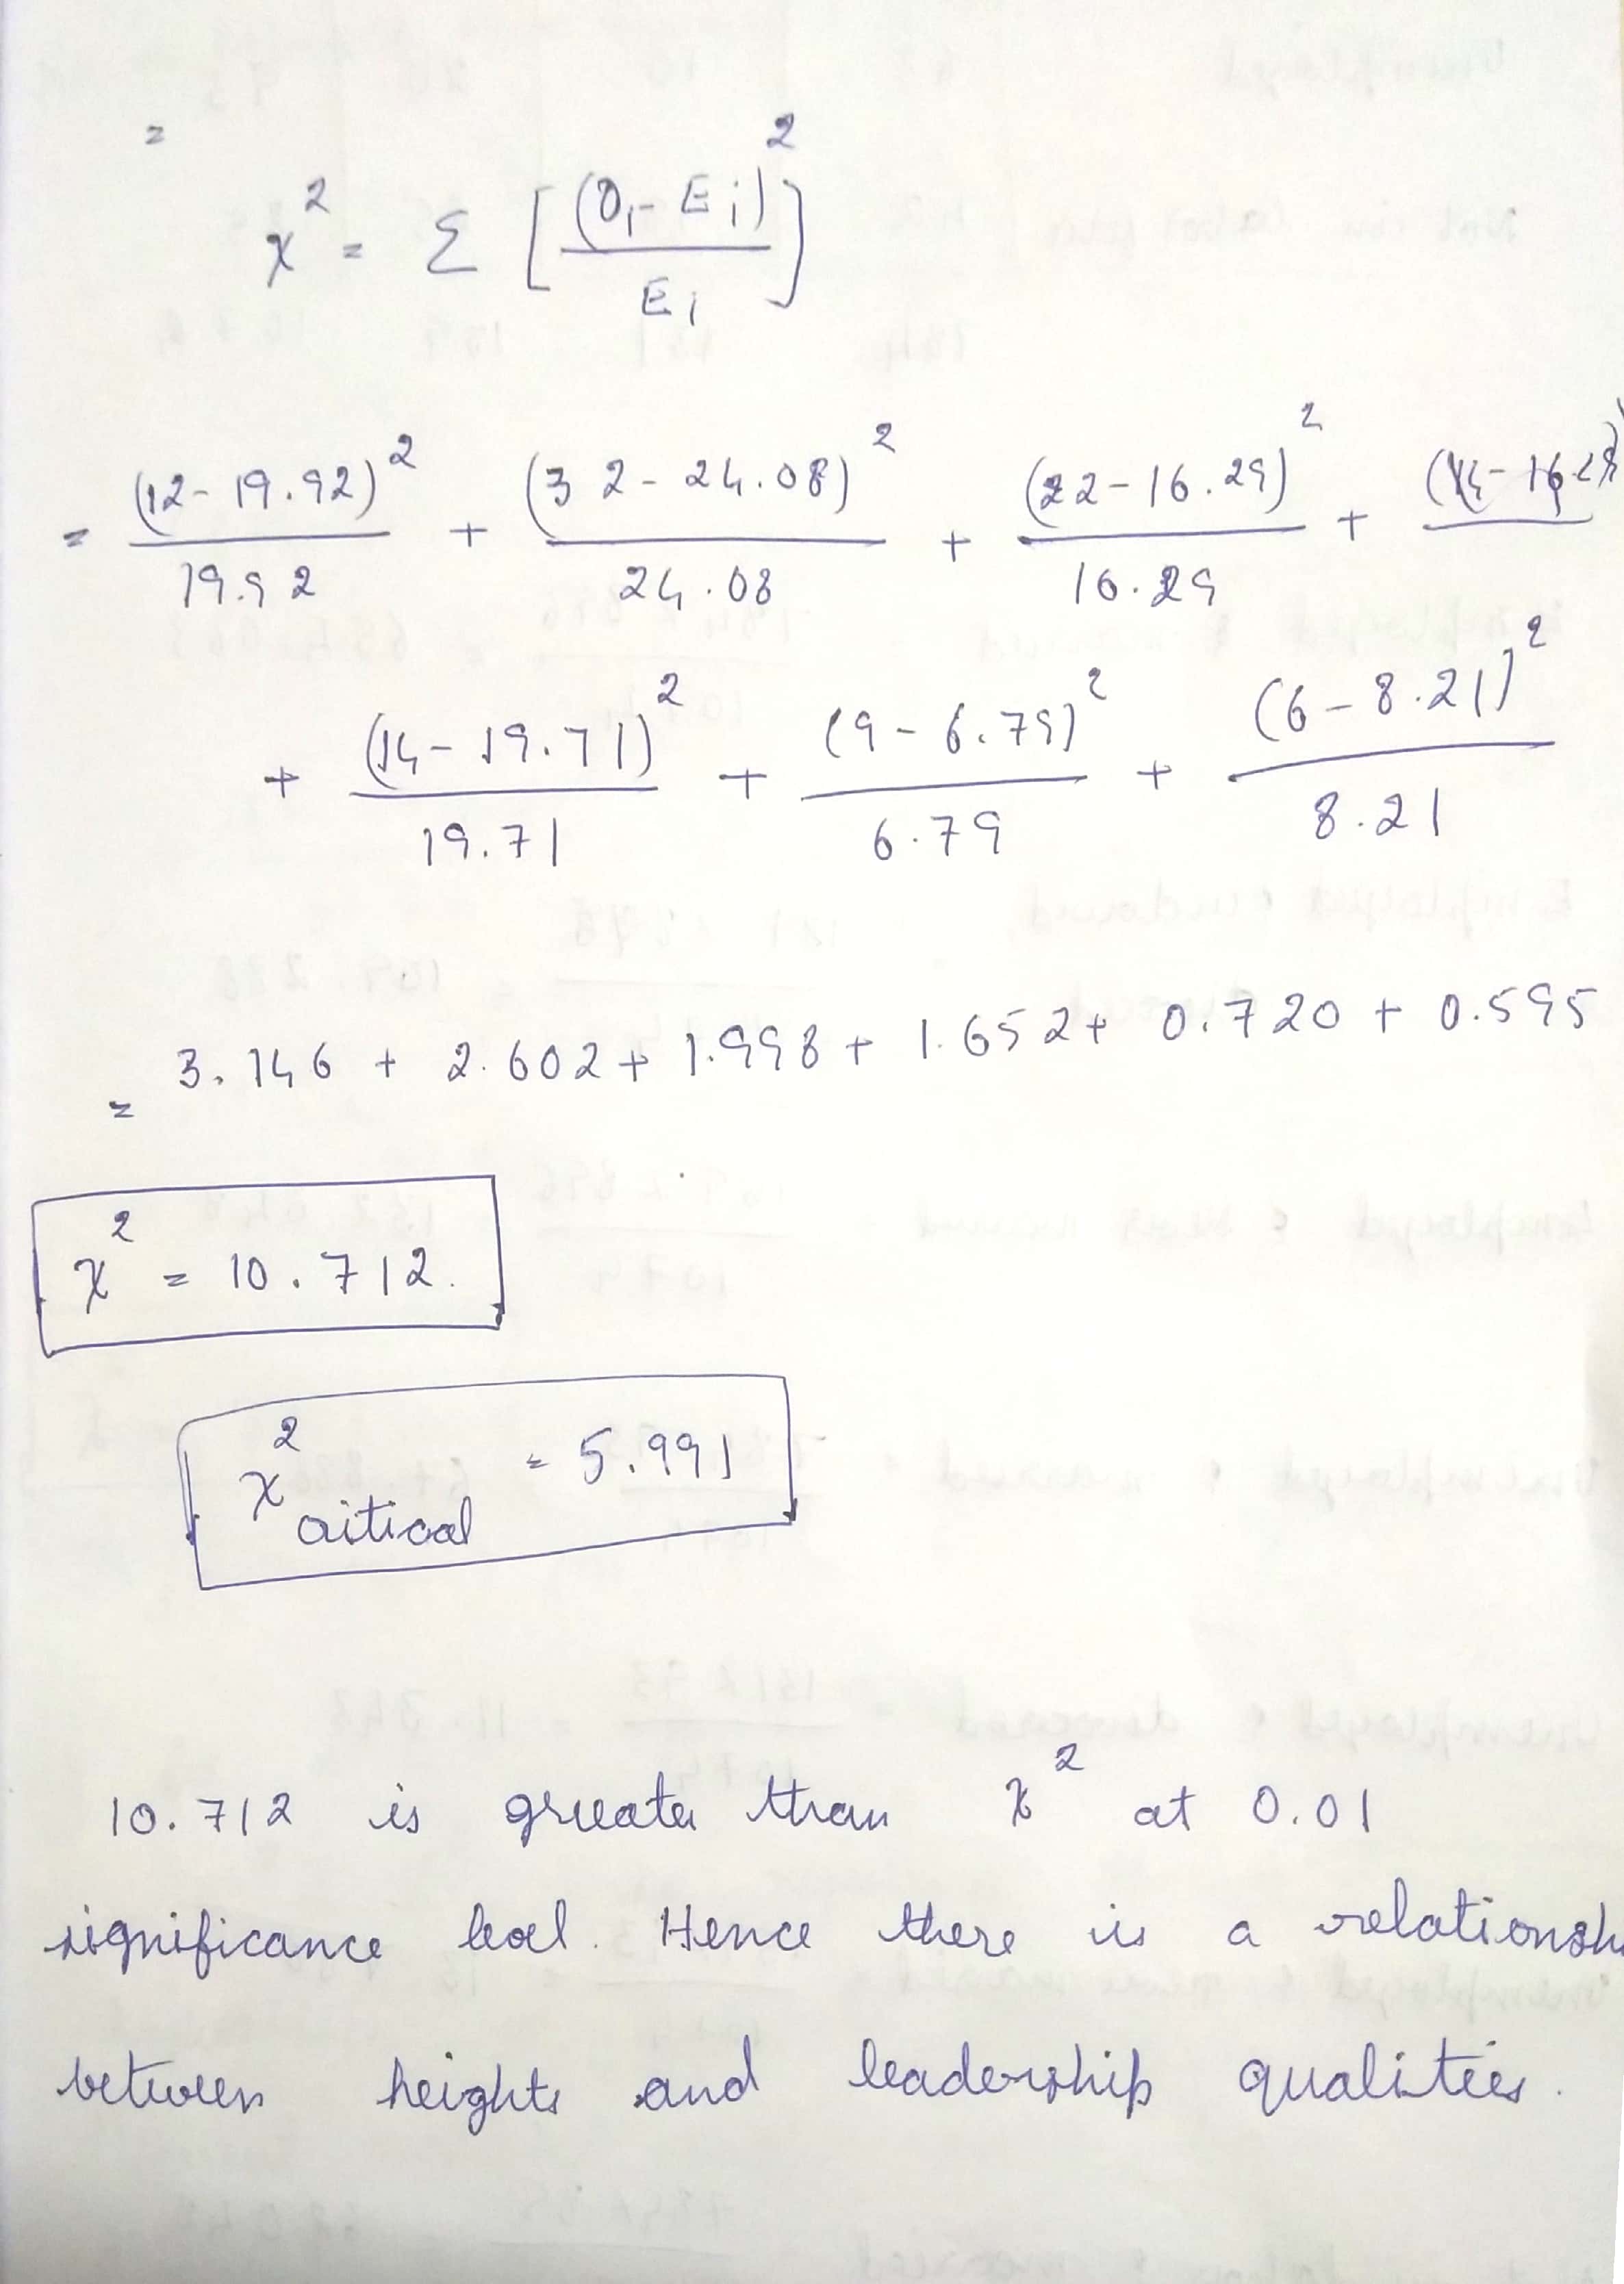 =
χ² = Σ [(Oi - Ei)² / Ei]
= (12 - 19.92)² / 19.92 + (32 - 24.08)² / 24.08 + (22 - 16.29)² / 16.29 +
+ (14 - 19.71)² / 19.71 + (9 - 6.79)² / 6.79 + (6 - 8.21)² / 8.21
= 3.146 + 2.602 + 1.998 + 1.652 + 0.720 + 0.595
χ² = 10.712.
χ² critical = 5.991
10.712 is greater than χ² at 0.01
significance level. Hence there is a relationsh
between heights and leadership qualities.